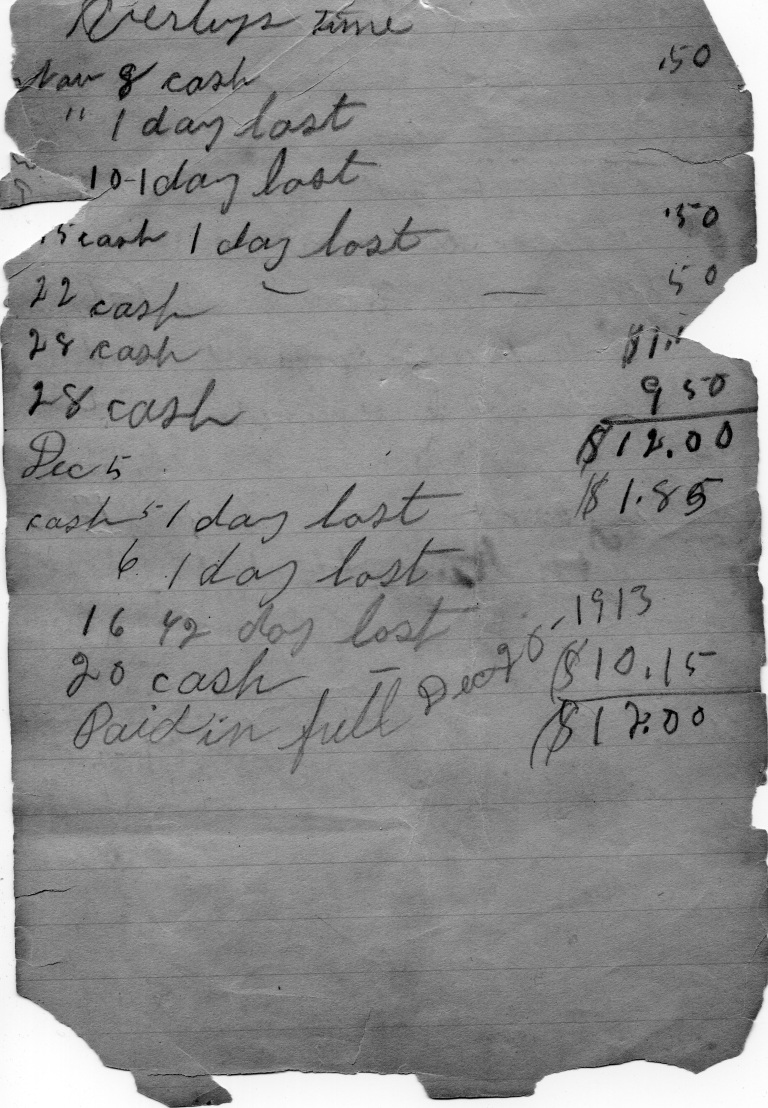 time
Nov 8 cash .50
" 1 day lost
10-1 day lost
15 cash 1 day lost .50
22 cash — — 50
28 cash $1.
28 cash 9 50
$12.00
Dec 5
cash 5 1 day lost $1.85
6 1 day lost
16 1/2 day lost
20 cash — $10.15
Paid in full Dec 20-1913
$12.00